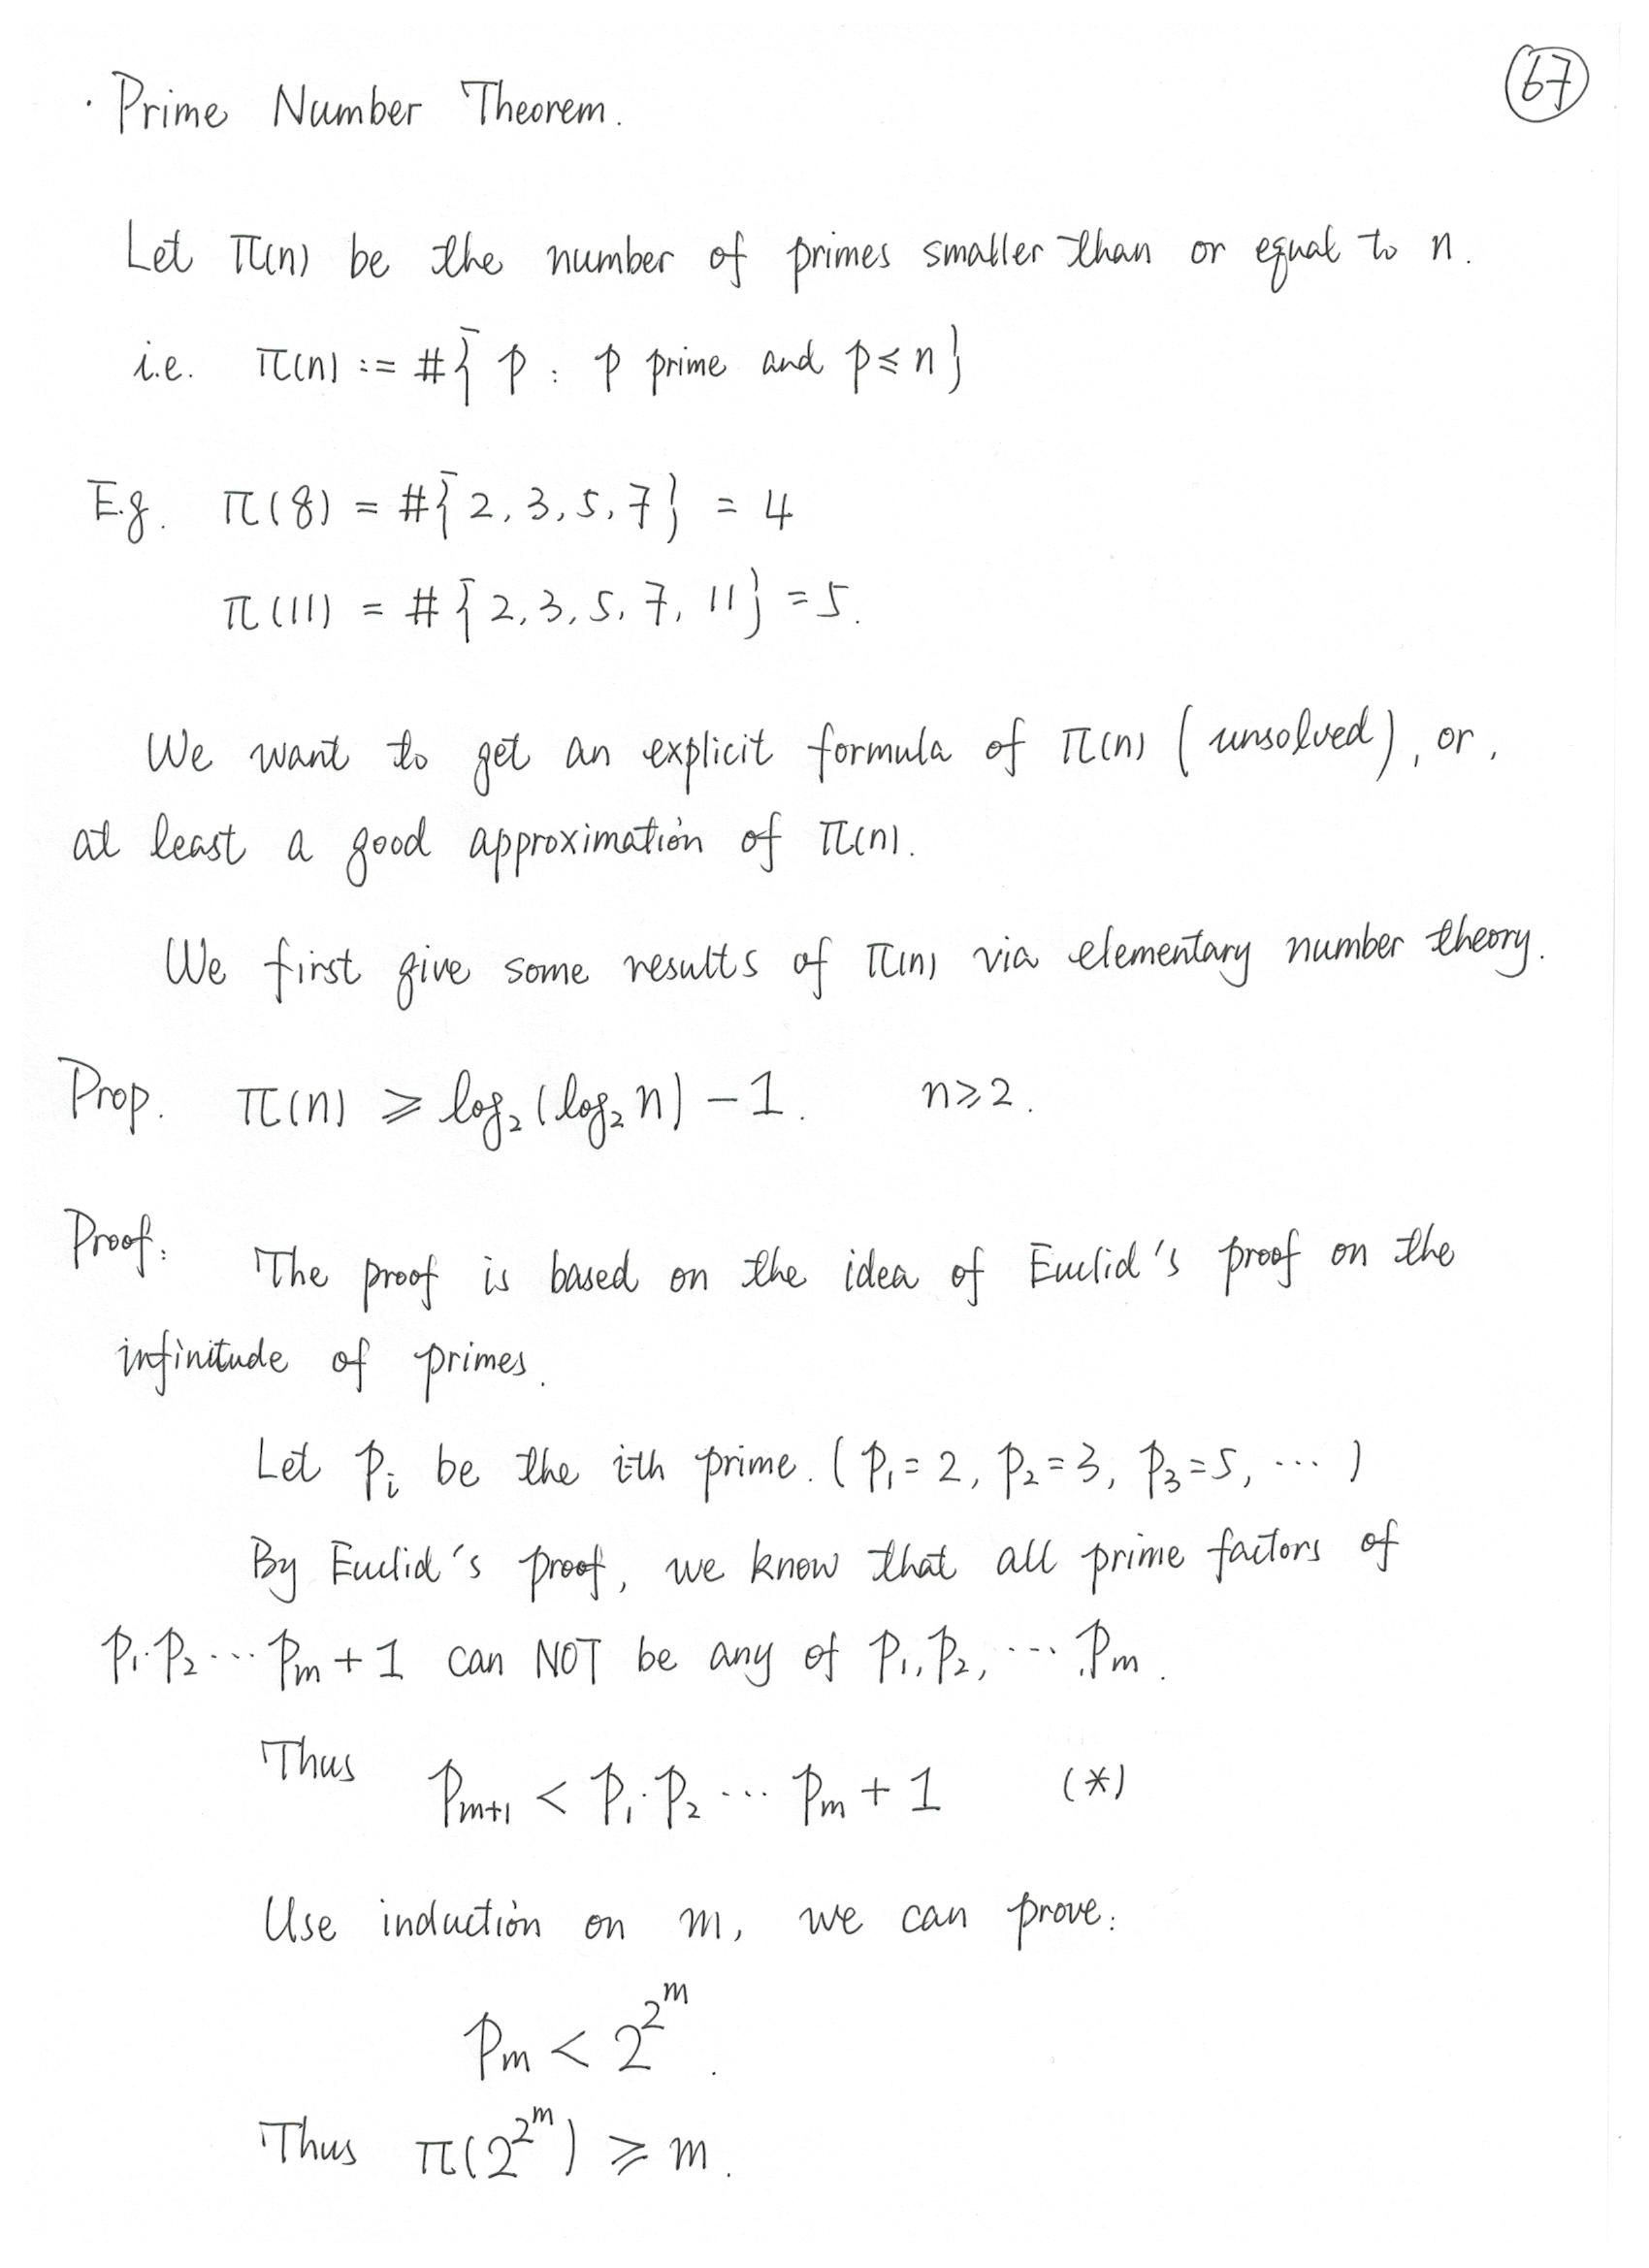 · Prime Number Theorem.
67
Let π(n) be the number of primes smaller than or equal to n.
i.e. π(n) := #{ p : p prime and p ≤ n}
E.g. π(8) = #{2, 3, 5, 7} = 4
π(11) = #{2, 3, 5, 7, 11} = 5.
We want to get an explicit formula of π(n) (unsolved), or,
at least a good approximation of π(n).
We first give some results of π(n) via elementary number theory.
Prop. π(n) ≥ log₂(log₂ n) − 1. n ≥ 2.
Proof: The proof is based on the idea of Euclid's proof on the
infinitude of primes.
Let pᵢ be the ith prime. (p₁ = 2, p₂ = 3, p₃ = 5, ⋯ )
By Euclid's proof, we know that all prime factors of
p₁·p₂ ⋯ pₘ + 1 can NOT be any of p₁, p₂, ⋯ pₘ.
Thus pₘ₊₁ < p₁·p₂ ⋯ pₘ + 1 (*)
Use induction on m, we can prove:
pₘ < 2^2^m.
Thus π(2^2^m) ≥ m.